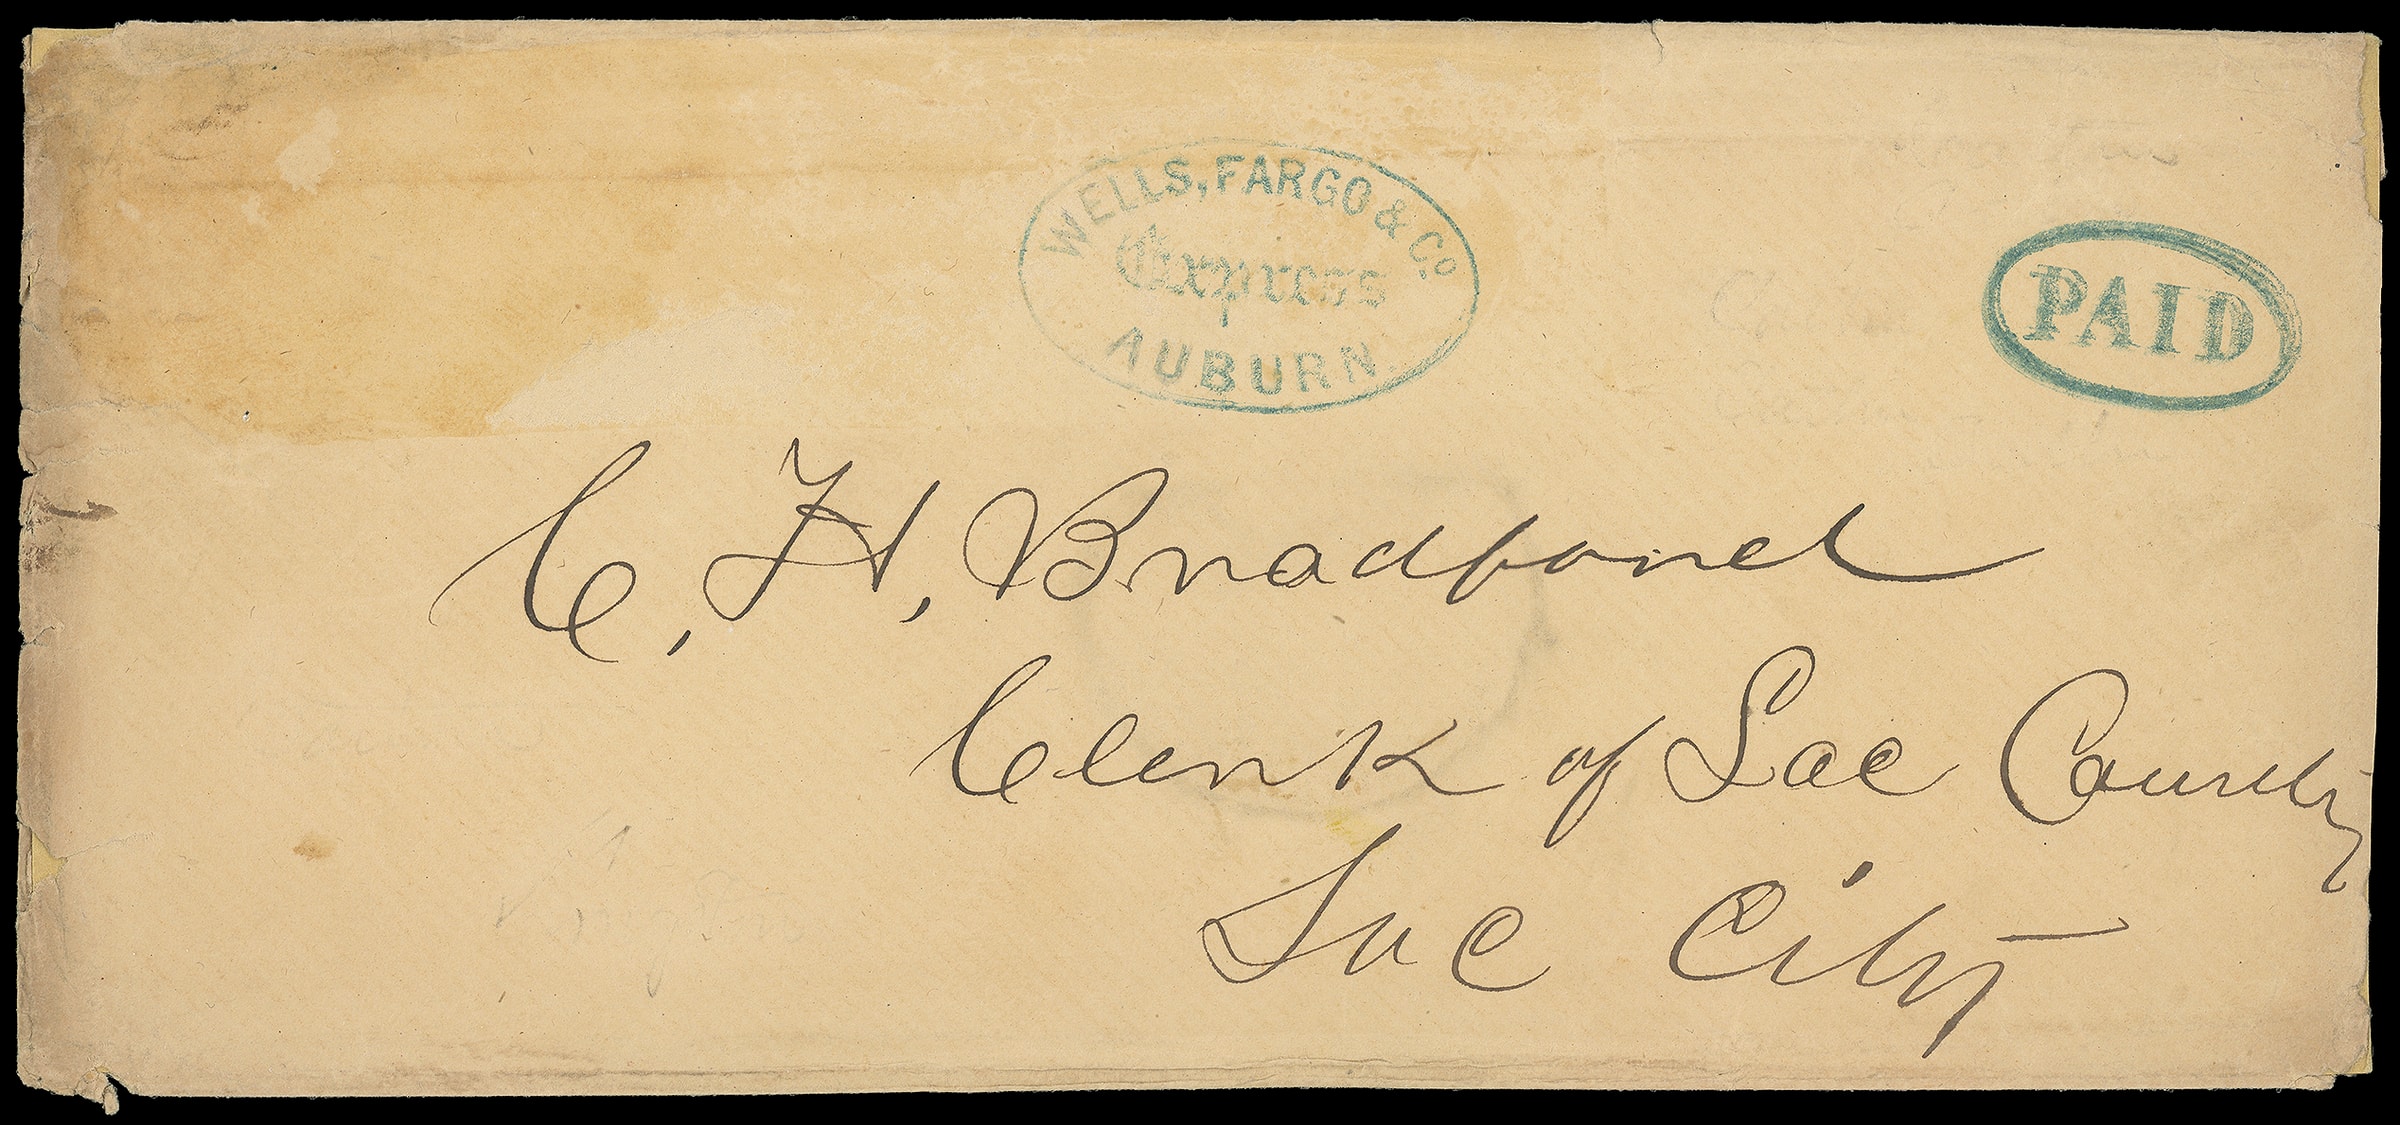 WELLS, FARGO & Co
Express
AUBURN.
PAID
C. H. Bradford
Clerk of Sac County
Sac City